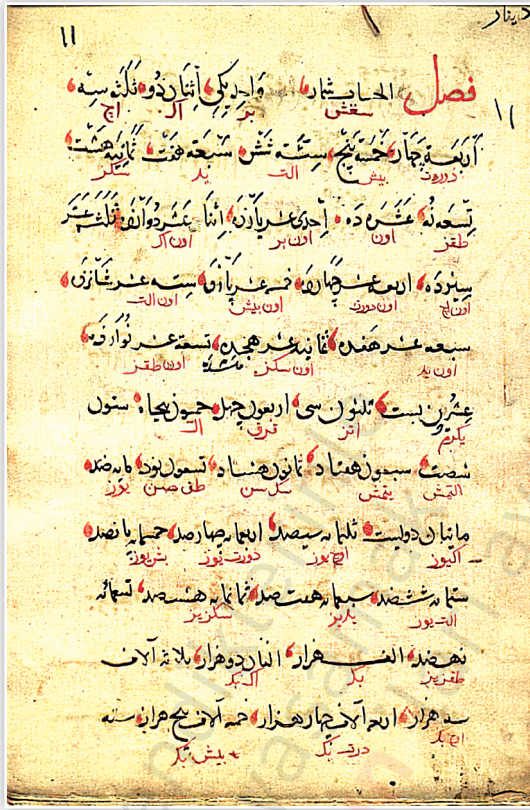 دینار
١١
فصل الحساب شمار واحد یکی اثنان دو ثلثه سه
سقش بر اکی اچ
اربعة چهار خمسة پنج ستة شش سبعة هفت ثمانیة هشت
دورت بیش الت ید سکز
تسعة نه عشره ده احدی عشر یازده اثنا عشر دوازده ثلثة عشر
طقز اون اون بر اون اکی
سیزده اربعه عشر چهارده خمسه عشر پانزده سته عشر شانزده
اون اچ اون دورت اون بیش اون الت
سبعه عشر هفده ثمانیه عشر هجده تسعة عشر نوزده
اون ید اون سکز اون طقز
عشرون بیست ثلثون سی اربعون چهل خمسون پنجاه ستون
یکرمی اتز قرق الی
شصت سبعون هفتاد ثمانون هشتاد تسعون نود مایه صد
التمش یتمش سکسن طقسن یوز
مایتان دویست ثلثمایه سیصد اربعمایه چهارصد خمسمایه پانصد
اکیوز اوچ یوز دورت یوز بش یوز
ستمایه ششصد سبعمایه هفتصد ثمانمایه هشتصد تسعمائه
الت یوز ید یوز سکز یوز
نهصد الف هزار الفان دو هزار ثلاثه آلاف
طقز یوز بیک اک بیک
سه هزار اربعه آلاف چهار هزار خمسه آلاف پنج هزار سته
اوچ بیک درت بیک بیش بیک